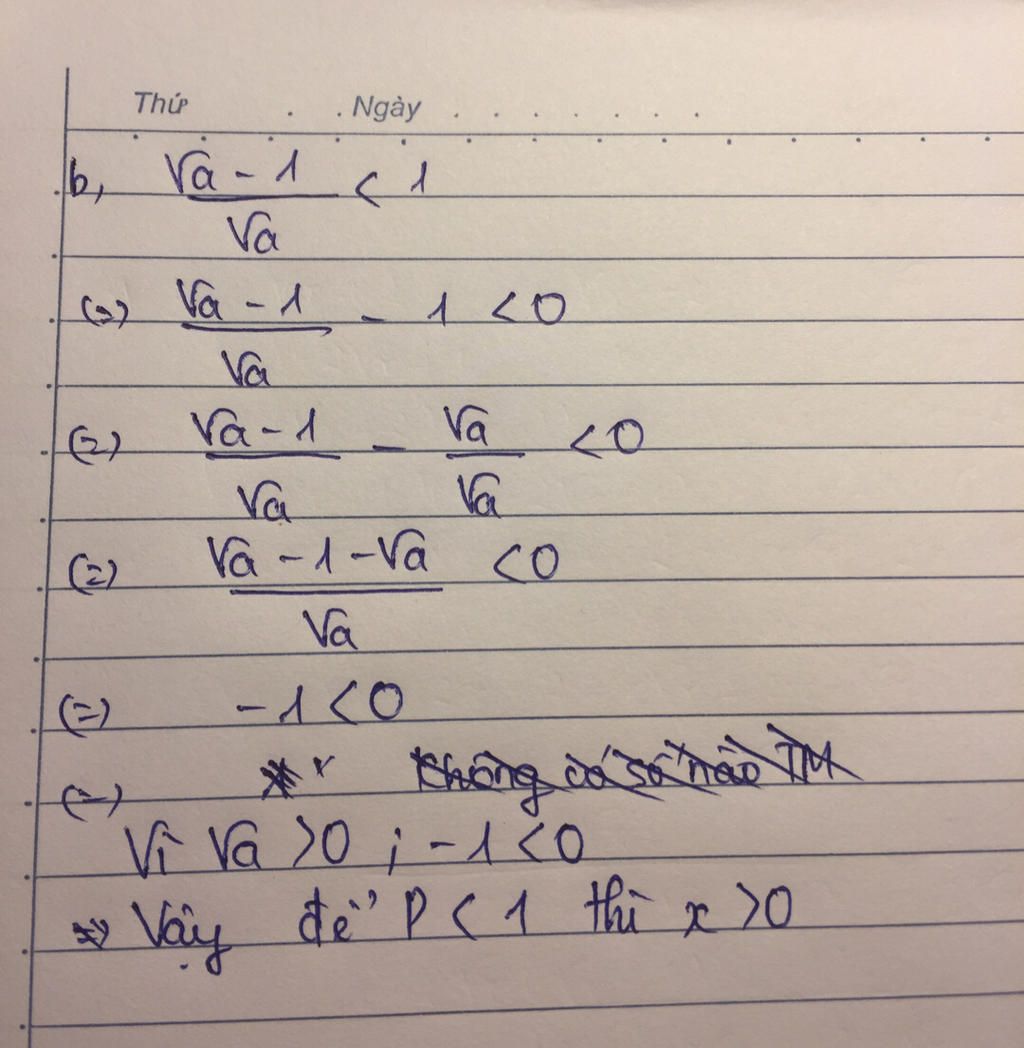 Thứ . . Ngày . . . . . . .
b, √a - 1 < 1
√a
(=) √a - 1 - 1 < 0
√a
(=) √a - 1 - √a < 0
√a √a
(=) √a - 1 - √a < 0
√a
(=) - 1 < 0
(=) Không có số nào TM
Vì √a > 0 ; - 1 < 0
=> Vậy để P < 1 thì x > 0